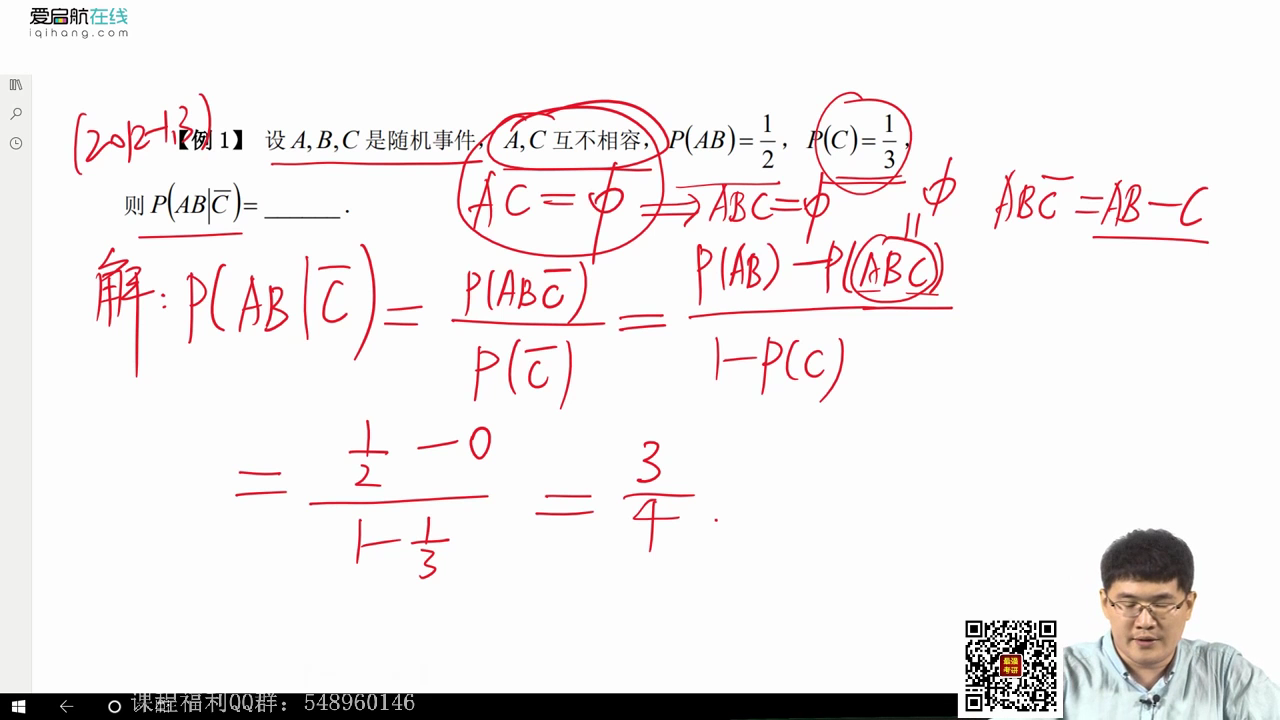 爱启航在线
iqihang.com
(2012-1,3)
【例 1】 设 A, B, C 是随机事件, A, C 互不相容, P(AB)=1/2, P(C)=1/3,
AC=ϕ ⟹ ABC=ϕ
ϕ
ABC̄=AB-C
则 P(AB|C̄)=______.
解: P(AB|C̄)=P(ABC̄)/P(C̄)=(P(AB)-P(ABC))/(1-P(C))
=(1/2-0)/(1-1/3)=3/4.
最强考研
课程福利QQ群: 548960146